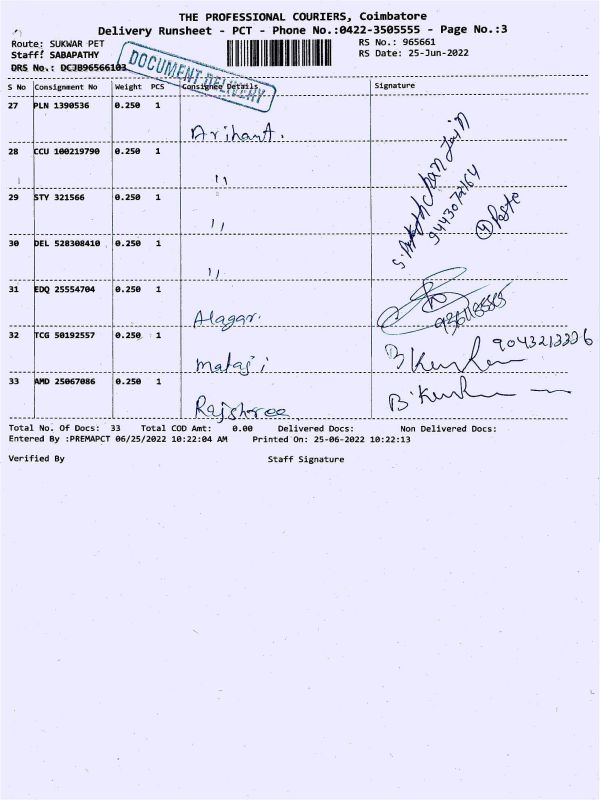 THE PROFESSIONAL COURIERS, Coimbatore
Delivery Runsheet - PCT - Phone No.:0422-3505555 - Page No.:3
Route: SUKWAR PET RS No.: 965661
Staff: SABAPATHY RS Date: 25-Jun-2022
DRS No.: DCJB96566103
DOCUMENT DELIVERY
S No Consignment No Weight PCS Consignee Details Signature
27 PLN 1390536 0.250 1 Arihant.
28 CCU 100219790 0.250 1 11
29 STY 321566 0.250 1 11
30 DEL 528308410 0.250 1 11
9443072164
31 EDQ 25554704 0.250 1 Alagar.
32 TCG 50192557 0.250 1 mataji 9043213336
33 AMD 25067086 0.250 1 Rajshree
Total No. Of Docs: 33 Total COD Amt: 0.00 Delivered Docs: Non Delivered Docs:
Entered By :PREMAPCT 06/25/2022 10:22:04 AM Printed On: 25-06-2022 10:22:13
Verified By Staff Signature